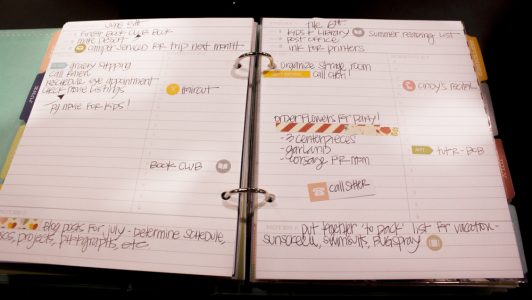 June 5th
Finish Book Club Book
make Desert
camper serviced for trip next month
grocery shopping
call Karen
Reschedule eye appointment
check movie listings
haircut
Try movie for kids!
Book Club
Blog posts for July - determine schedule,
projects, photographs, etc.
Tue 6th
kids + library
post office
ink for printers
Summer reading list
organize storage room
call cash!
cindy's recital
order flowers for party!
- 3 centerpieces
- garland
- corsage for mom
tutor - Bob
call sitter
put together "to pack" list for vacation -
sunscreen, swimsuits, bug spray